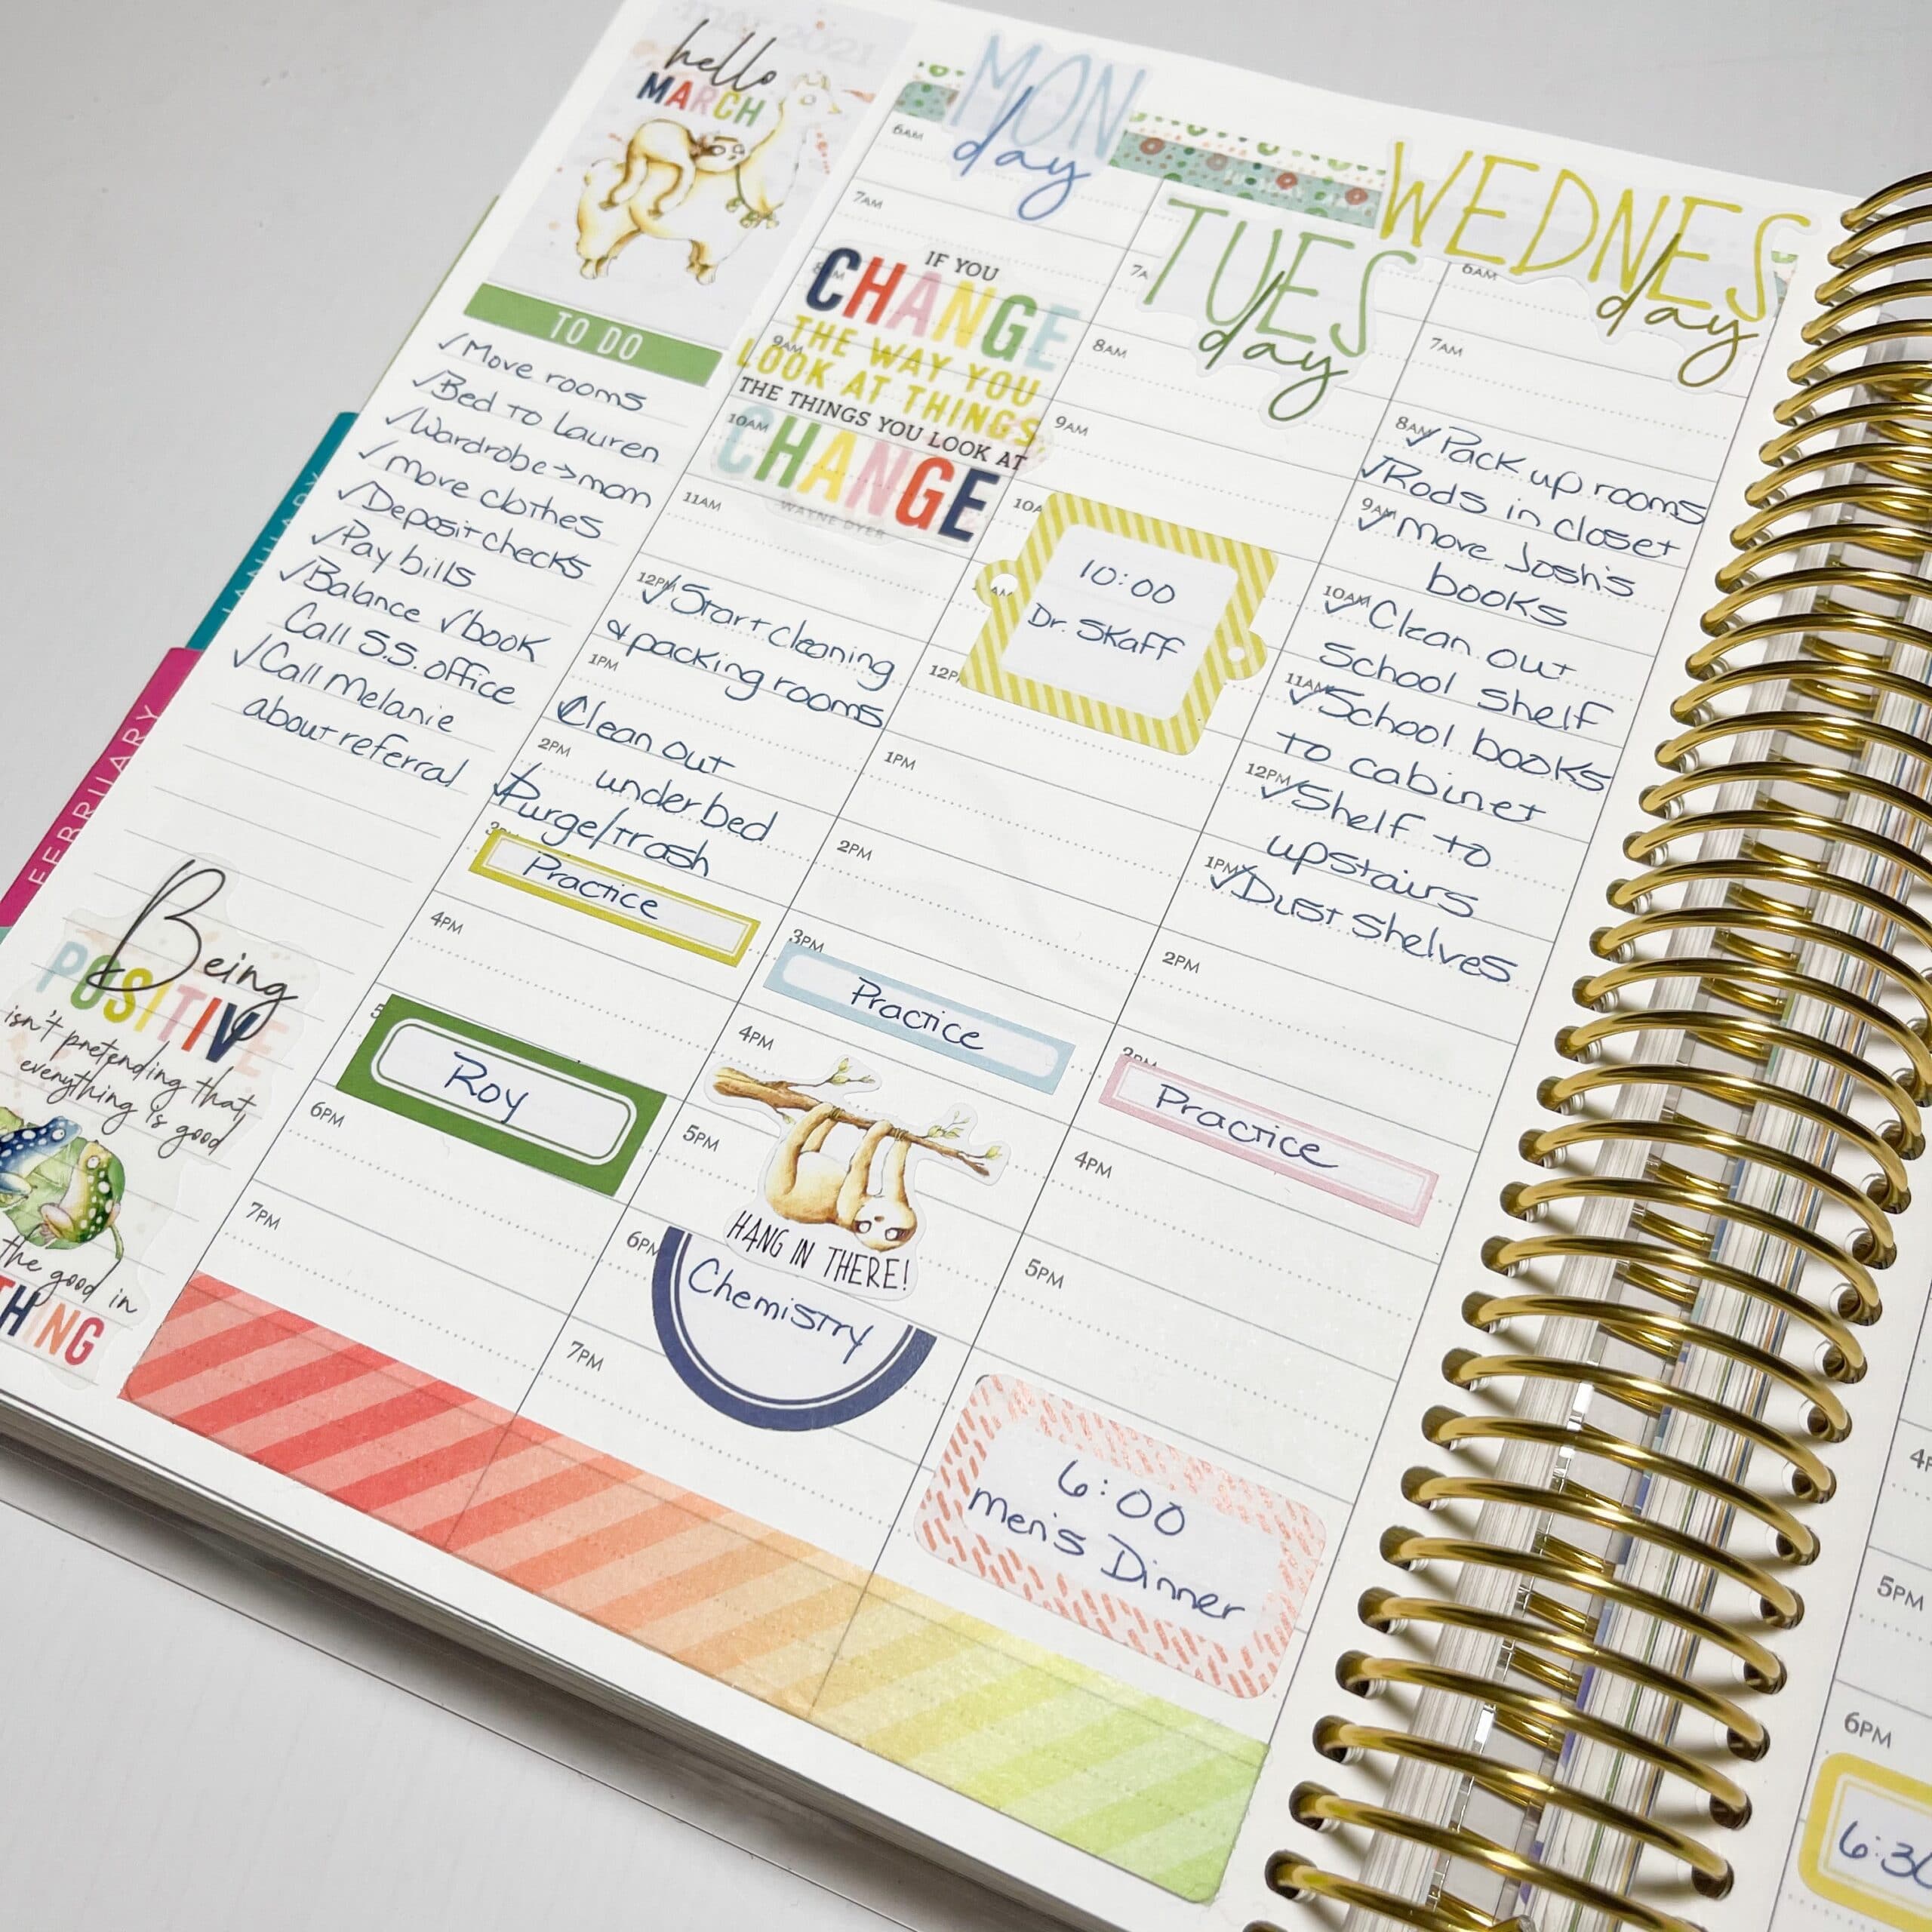 mar 2021
hello
MARCH
TO DO
✓Move rooms
✓Bed to Lauren
✓Wardrobe→mom
✓move clothes
✓Deposit checks
✓Pay bills
✓Balance ✓book
Call S.S. office
✓Call Melanie
about referral
Being
POSITIVE
isn't pretending that
everything is good
the good in
THING
JANUARY
FEBRUARY
MON
day
6AM
7AM
8AM
IF YOU
CHANGE
THE WAY YOU
9AM
LOOK AT THINGS
THE THINGS YOU LOOK AT
10AM
CHANGE
WAYNE DYER
11AM
12PM
✓Start cleaning
& packing rooms
1PM
✓Clean out
2PM
under bed
✓Purge/trash
3PM
Practice
4PM
5
Roy
6PM
7PM
TUES
day
7A
8AM
9AM
10A
10:00
AM
Dr. Skaff
12P
1PM
2PM
3PM
Practice
4PM
5PM
HANG IN THERE!
6PM
Chemistry
7PM
WEDNES
day
6AM
7AM
8AM
✓Pack up rooms
✓Rods in closet
9AM
✓Move Josh's
books
10AM
✓Clean out
school shelf
11AM
✓School books
to cabinet
12PM
✓Shelf to
upstairs
1PM
✓Dust shelves
2PM
3PM
Practice
4PM
5PM
6:00
Men's Dinner
4P
5PM
6PM
6:30